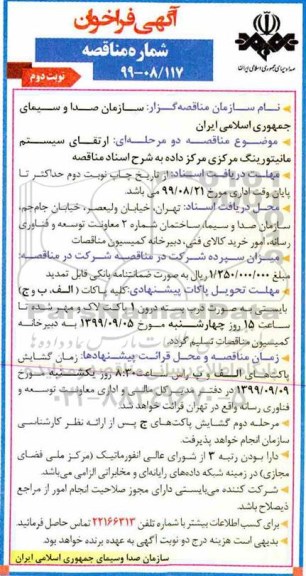 آگهی فراخوان
شماره مناقصه
۹۹-۰۸/۱۱۷
نوبت دوم
صدا و سیمای جمهوری اسلامی ایران
نام سازمان مناقصه‌گزار: سازمان صدا و سیمای
جمهوری اسلامی ایران
موضوع مناقصه دو مرحله‌ای: ارتقای سیستم
مانیتورینگ مرکزی مرکز داده به شرح اسناد مناقصه
مهلت دریافت اسناد: از تاریخ چاپ نوبت دوم حداکثر تا
پایان وقت اداری مورخ ۹۹/۰۸/۲۱ می باشد.
محل دریافت اسناد: تهران، خیابان ولیعصر، خیابان جام‌جم،
سازمان صدا و سیما، ساختمان شماره ۲ معاونت توسعه و فناوری
رسانه، امور خرید کالای فنی، دبیرخانه کمیسیون مناقصات
میزان سپرده شرکت در مناقصه شرکت در مناقصه:
مبلغ ۱/۲۵۰/۰۰۰/۰۰۰ ریال به صورت ضمانتنامه بانکی قابل تمدید
مهلت تحویل پاکات پیشنهادی: کلیه پاکات (الف، ب و ج)
بایستی به صورت در بسته درون پاکت لاک و مهر شده تا
ساعت ۱۵ روز چهارشنبه مورخ ۱۳۹۹/۰۹/۰۵ به دبیرخانه
کمیسیون مناقصات تسلیم گردد.
زمان مناقصه و محل قرائت پیشنهادها: زمان گشایش
پاکت‌های الف راس ساعت ۸:۳۰ روز یکشنبه مورخ
۱۳۹۹/۰۹/۰۹ در دفتر مدیر کل مالی و اداری معاونیت توسعه و
فناوری رسانه واقع در تهران قرائت خواهد شد.
مرحله دوم گشایش پاکت‌های ج پس از ارائه نظر کارشناسی
سازمان انجام خواهد پذیرفت.
دارا بودن رتبه ۳ از شورای عالی انفورماتیک (مرکز ملی فضای
مجازی) در زمینه شبکه داده‌های رایانه‌ای و مخابراتی الزامی می‌باشد.
شرکت کننده می‌بایستی دارای مجوز صلاحیت انجام امور از مراجع
ذیصلاح باشد.
برای کسب اطلاعات بیشتر با شماره تلفن ۲۲۱۶۶۳۱۳ تماس حاصل فرمائید
بدیهی است هزینه درج دو نوبت آگهی به عهده برنده خواهد بود.
سازمان صدا وسیمای جمهوری اسلامی ایران